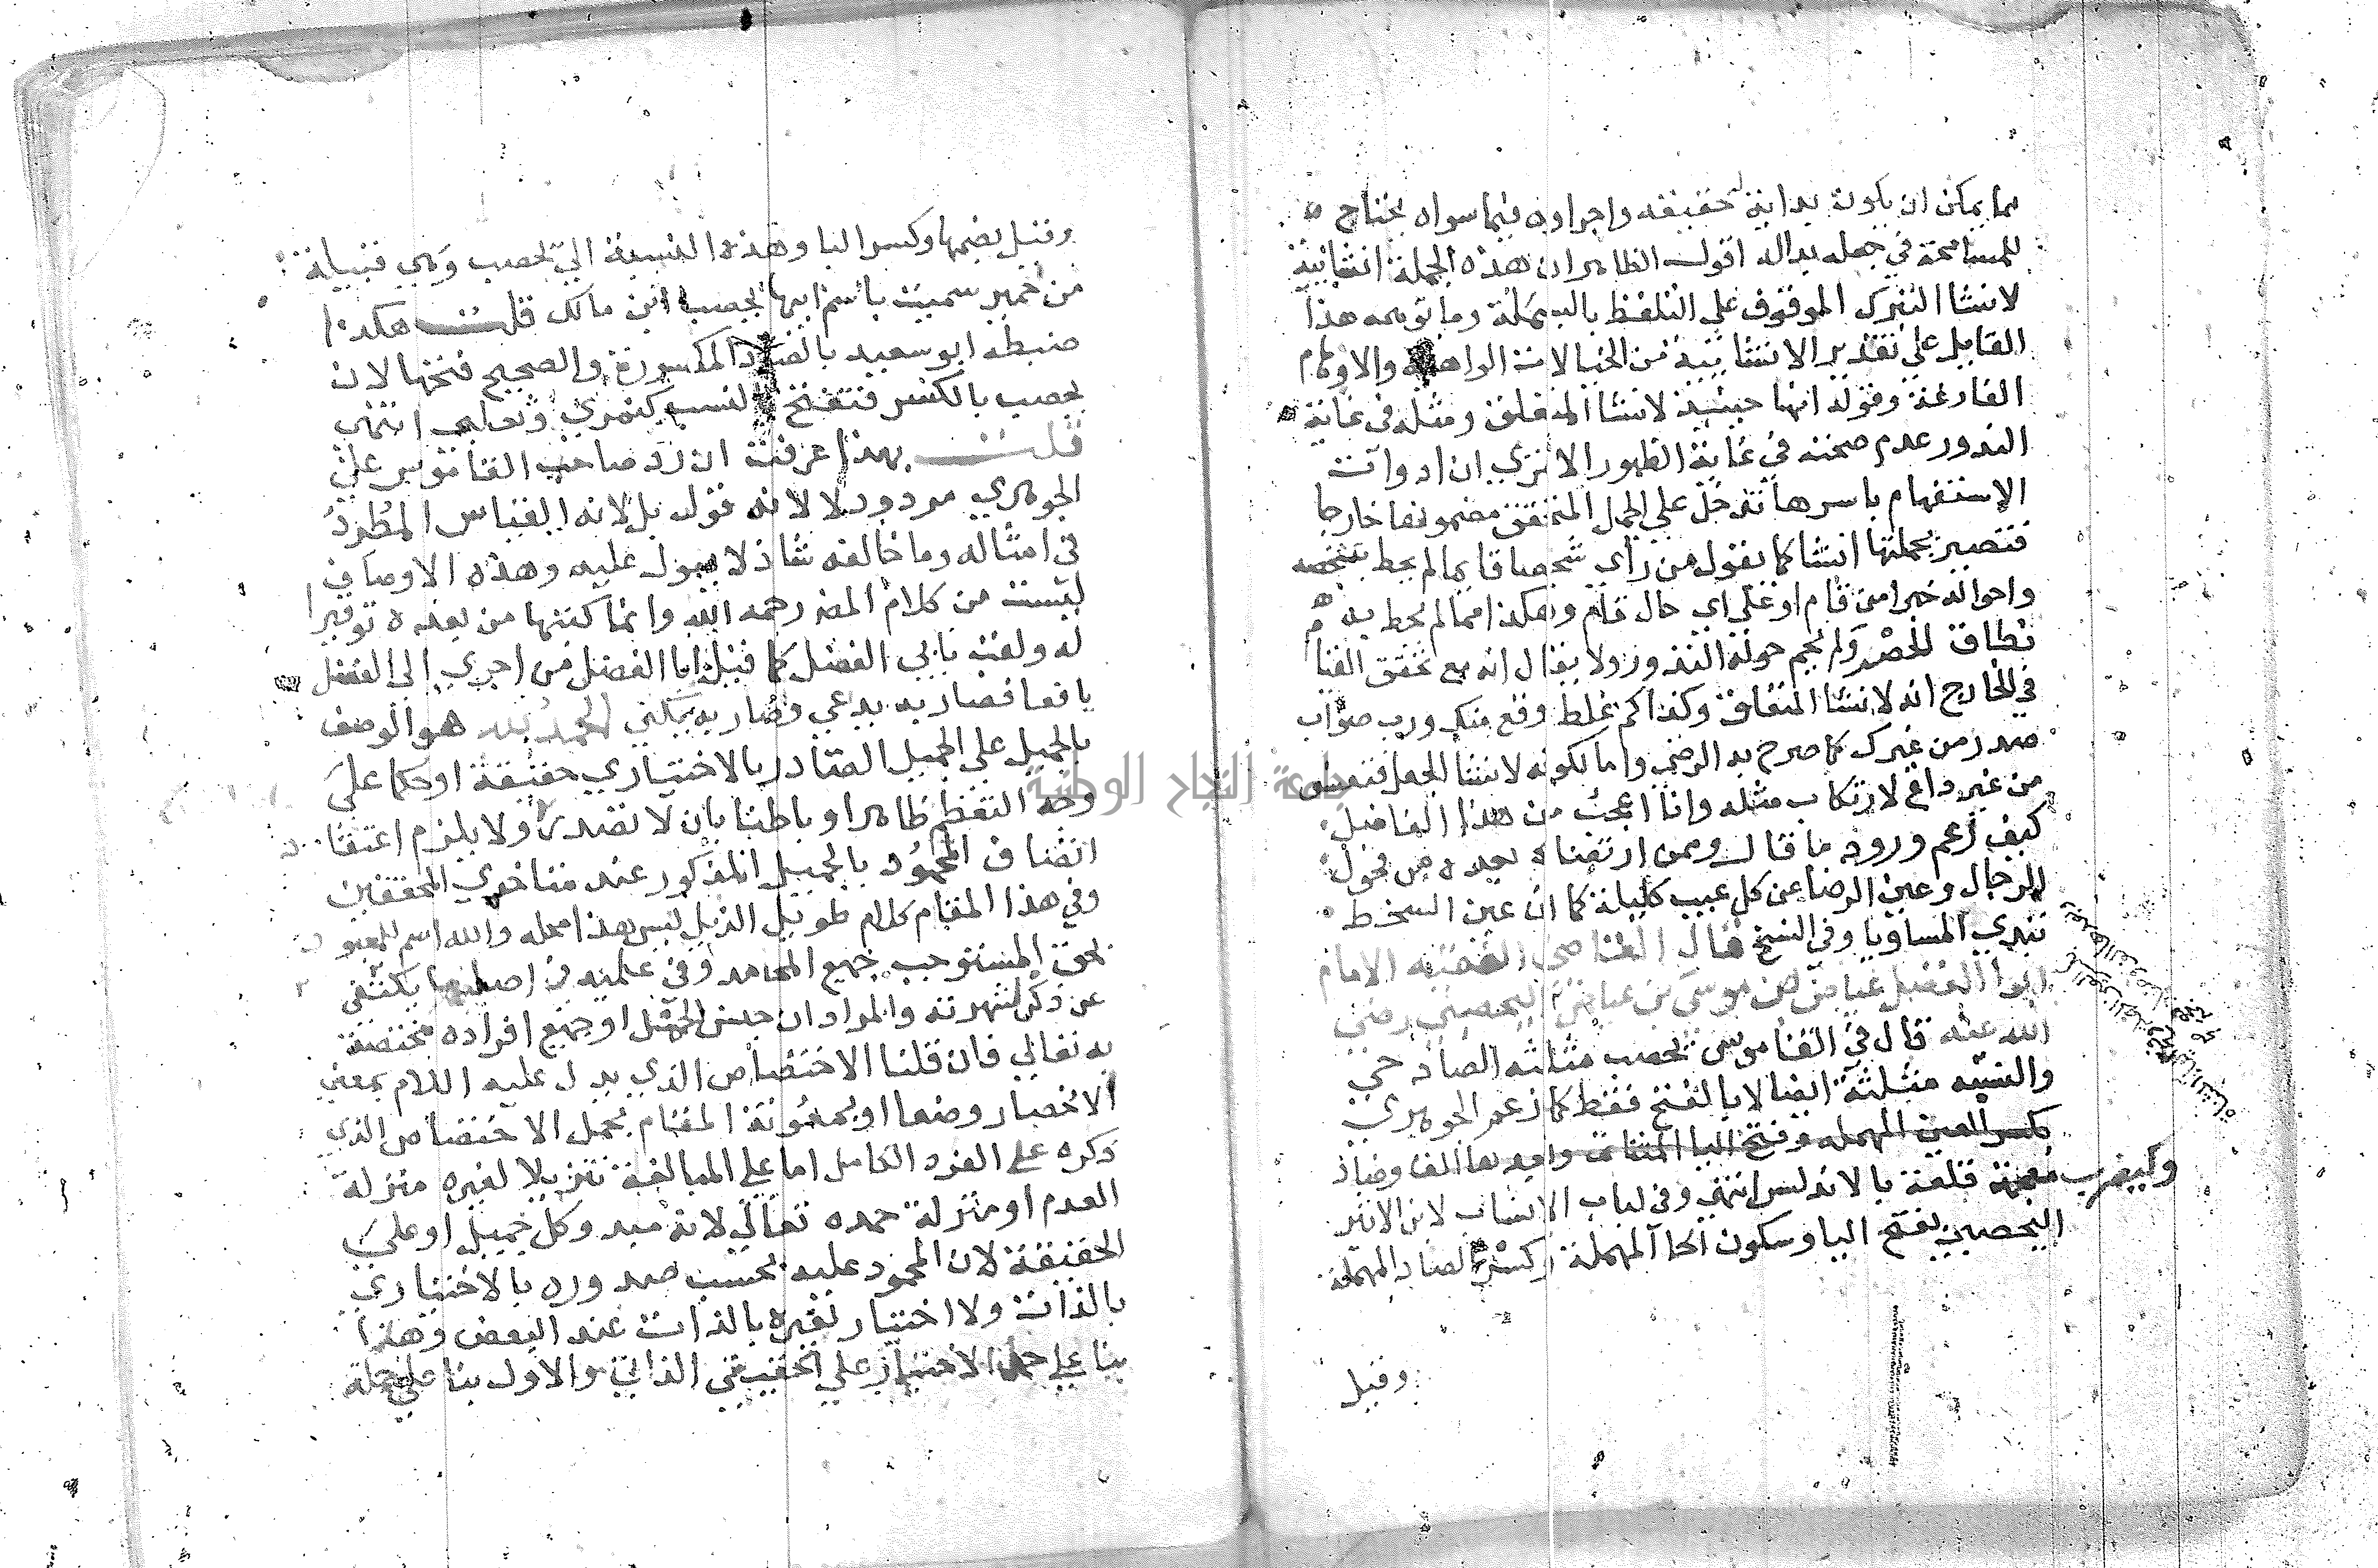 مما يمكن ان يكون بداية حقيقه واجراوه فيما سواه يحتاج
للمسامحة في جعله بداله اقول الظاهر ان هذه الجملة انشائية
لانشا التبرك الموقوف على التلفظ بالبسملة وما توهمه هذا
القايل على تقدير الانشائية من الخيالات الواهية والاوهام
الفارغة وقوله انها حينيذ لانشا المتعلق ومثله في غاية
الندور عدم صحته في غاية الظهور الا ترى ان ادوات
الاستفهام باسرها تدخل على الجمل المتحقق مضمونها خارجا
فتصير بجملتها انشا كما تقول من راي شخصا قايما لم يحط بشخصه
واحواله خبرا من قام او على اي حال قام وهكذا مما لم يحط به
نطاق الحصر ولم يحم حوله الندور ولا يقال انه مع تحقق القيا
في الخارج انه لانشا المتعلق وكذا كم غلط وقع منك ورب صواب
صدر من غيرك كما صرح به الرضي واما لكونه لانشا الجعل فتعسف
من غير داع لارتكاب مثله وانا اعجب من هذا الفاضل
كيف زعم ورود ما قال وممن ارتضاه بعده من فحول
الرجال وعين الرضا عن كل عيب كليلة كما ان عين السخط
تبدي المساويا وفي النسخ قال القاضي الفقيه الامام
ابوا الفضل عياض بن موسى بن عياض اليحصبي رضي
الله عنه قال في القاموس يحصب مثلثه الصاد حي
والنسبه مثلثة ايضا لا بالفتح فقط كما زعم الجوهري
بكسر العين المهمله وفتح اليا المثناة وبعدها الف وضاد
وكيضرب معجمة قلعة بالاندلس انتهى وفي لباب الانساب لابن الاثير
اليحصبي بفتح اليا وسكون الحا المهملة وكسر الصاد المهملة
وقيل
وقيل بضمها وكسر البا وهذه النسبة الى يحصب وهي قبيلة
من حمير سميت باسم ابيها يحصب ابن مالك قلت هكذا
ضبطه ابو سعيد بالضاد المكسورة والصحيح فتحها لان
يحصب بالكسر فتفتح النسب كنمري وثعلبي انتهى
قلت بهذا عرفت ان رد صاحب القاموس على
الجوهري مردود لا لانه قول بل لانه القياس المطرد
في امثاله وما خالفه شاذ لا يعول عليه وهذه الاوصاف
ليست من كلام المص رحمه الله وانما كتبها من بعده توقيرا
له ولقب بابي الفضل كما قيل ابا الفضل من اجري الى الفضل
يافعا فصار به يدعي وصار به يكنى الحمد لله هو الوصف
بالجميل على الجميل الصادر بالاختياري حقيقة او حكما على
وجه التعظيم ظاهرا وباطنا بان لا تقدره ولا يلزم اعتقا
اتصاف المحمود بالجميل المذكور عند متاخري المحققين
وفي هذا المقام كلام طويل الذيل ليس هذا محله والله اسم للمعبو
بحق المستوجب جميع المحامد وفي علميته و اصليها يكتفى
عن ذكر لشهرته والمراد ان جنس الحمد او جميع افراده مختصة
به تعالي فان قلنا الاختصاص الذي يدل عليه اللام بمعنى
الانحصار وضعا او بمعونة المقام بحمل الاختصاص الذي
ذكره على الفرد الكامل اما على المبالغة تنزيلا لغيره منزلة
العدم او منزلة حمده تعالي لانه مبد وكل جميل او على
الحقيقة لان المحمود عليه يحسب صدوره بالاختياري
بالذات ولا اختيار لغيره بالذات عند البعض وهذا
بنا على حمل الاختيار على الحقيقي الذاتي والاول بنا على حمله
جامعة النجاح الوطنية